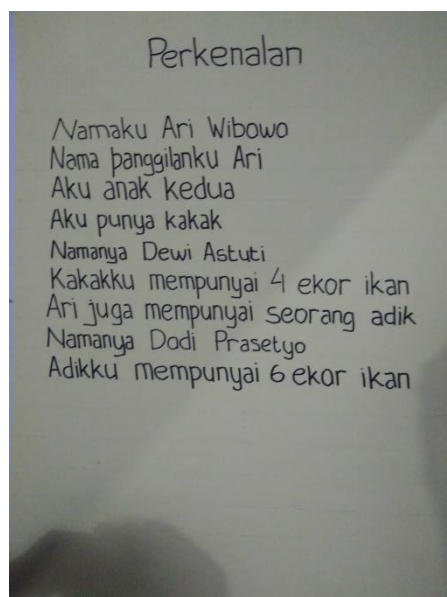 Perkenalan
Namaku Ari Wibowo
Nama panggilanku Ari
Aku anak kedua
Aku punya kakak
Namanya Dewi Astuti
Kakakku mempunyai 4 ekor ikan
Ari juga mempunyai seorang adik
Namanya Dodi Prasetyo
Adikku mempunyai 6 ekor ikan